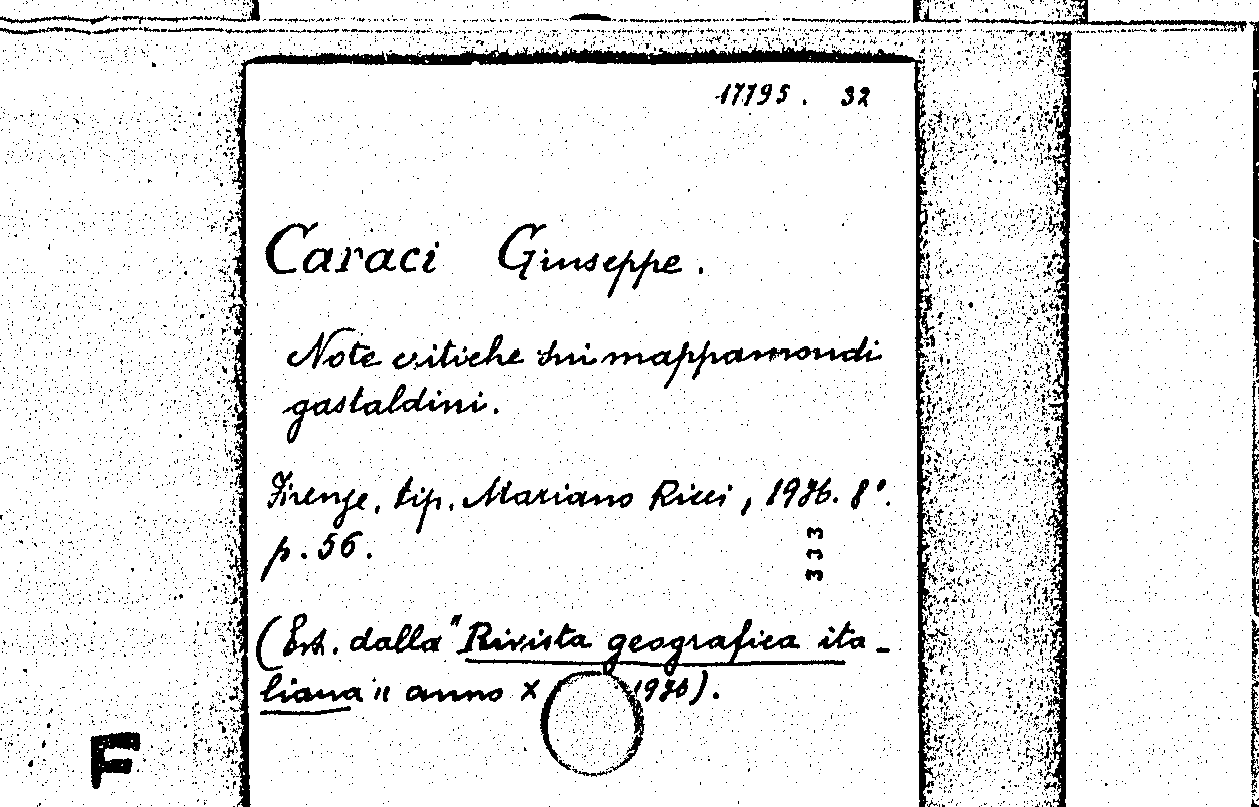 17795. 32
Caraci Giuseppe.
Note critiche sui mappamondi
gastaldini.
Firenze, tip. Mariano Ricci, 1936. 8°.
p. 56.
333
(Est. dalla "Rivista geografica ita-
liana" anno X 1936).
F